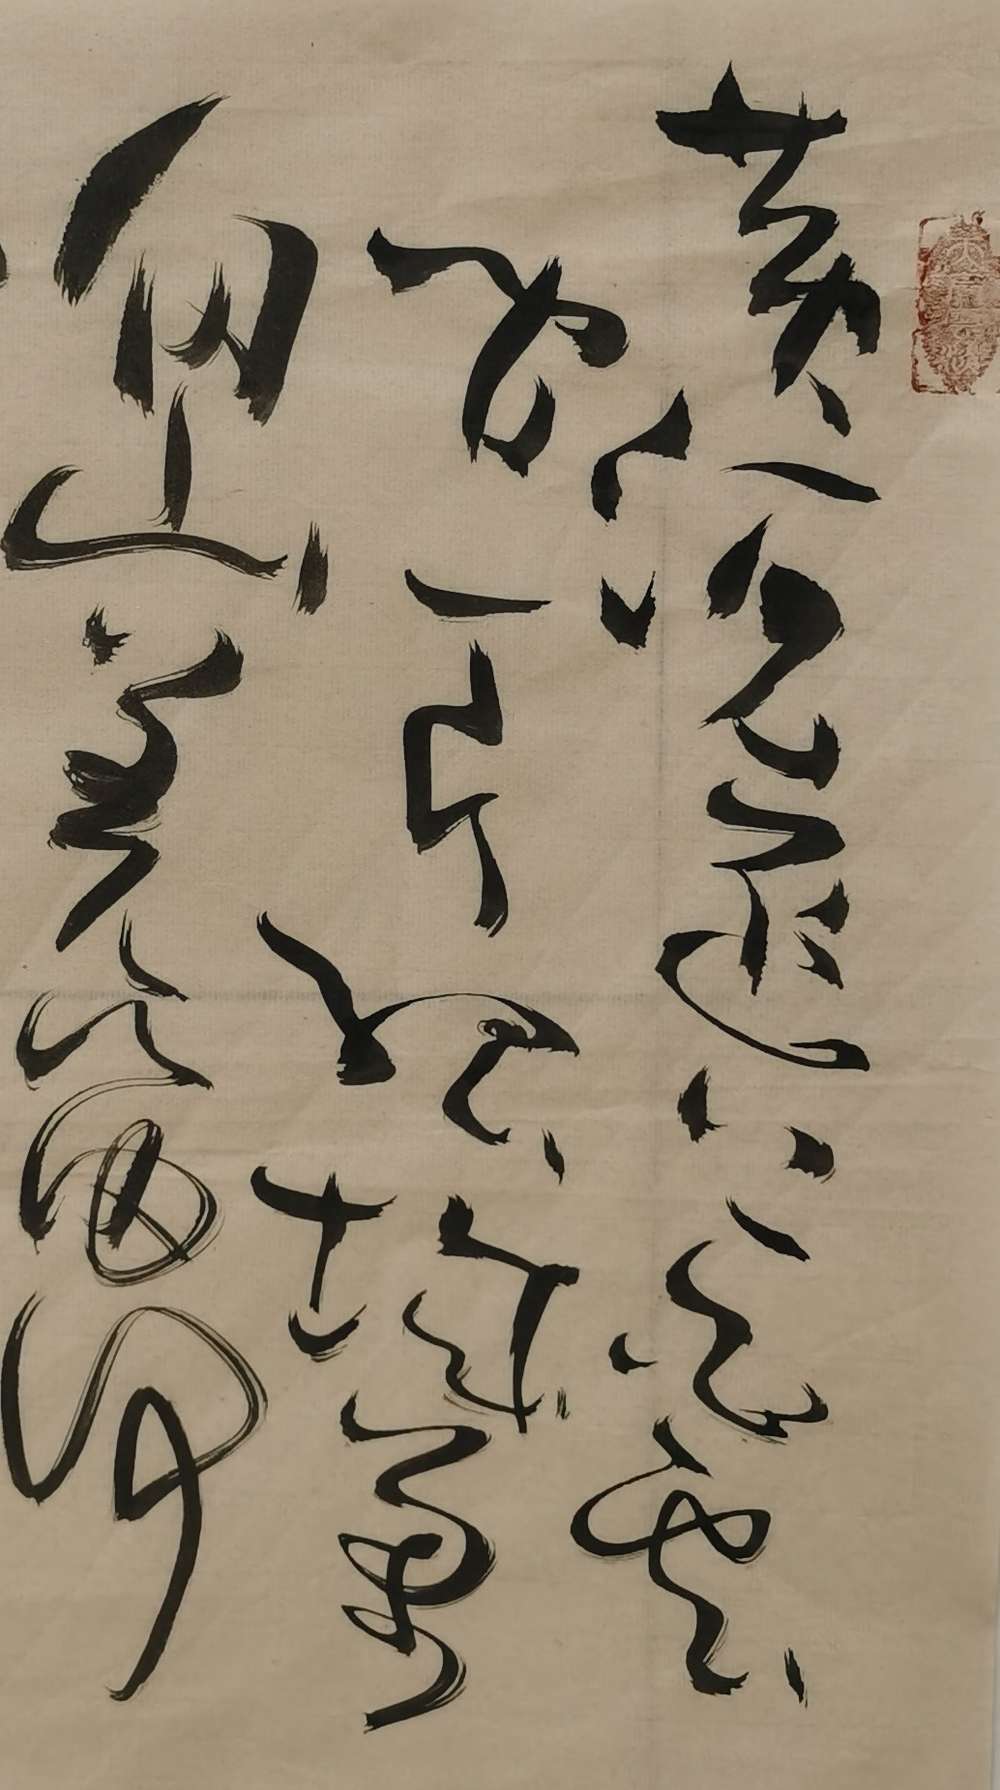 黄河远上白云
间一片孤城万
仞山羌笛何